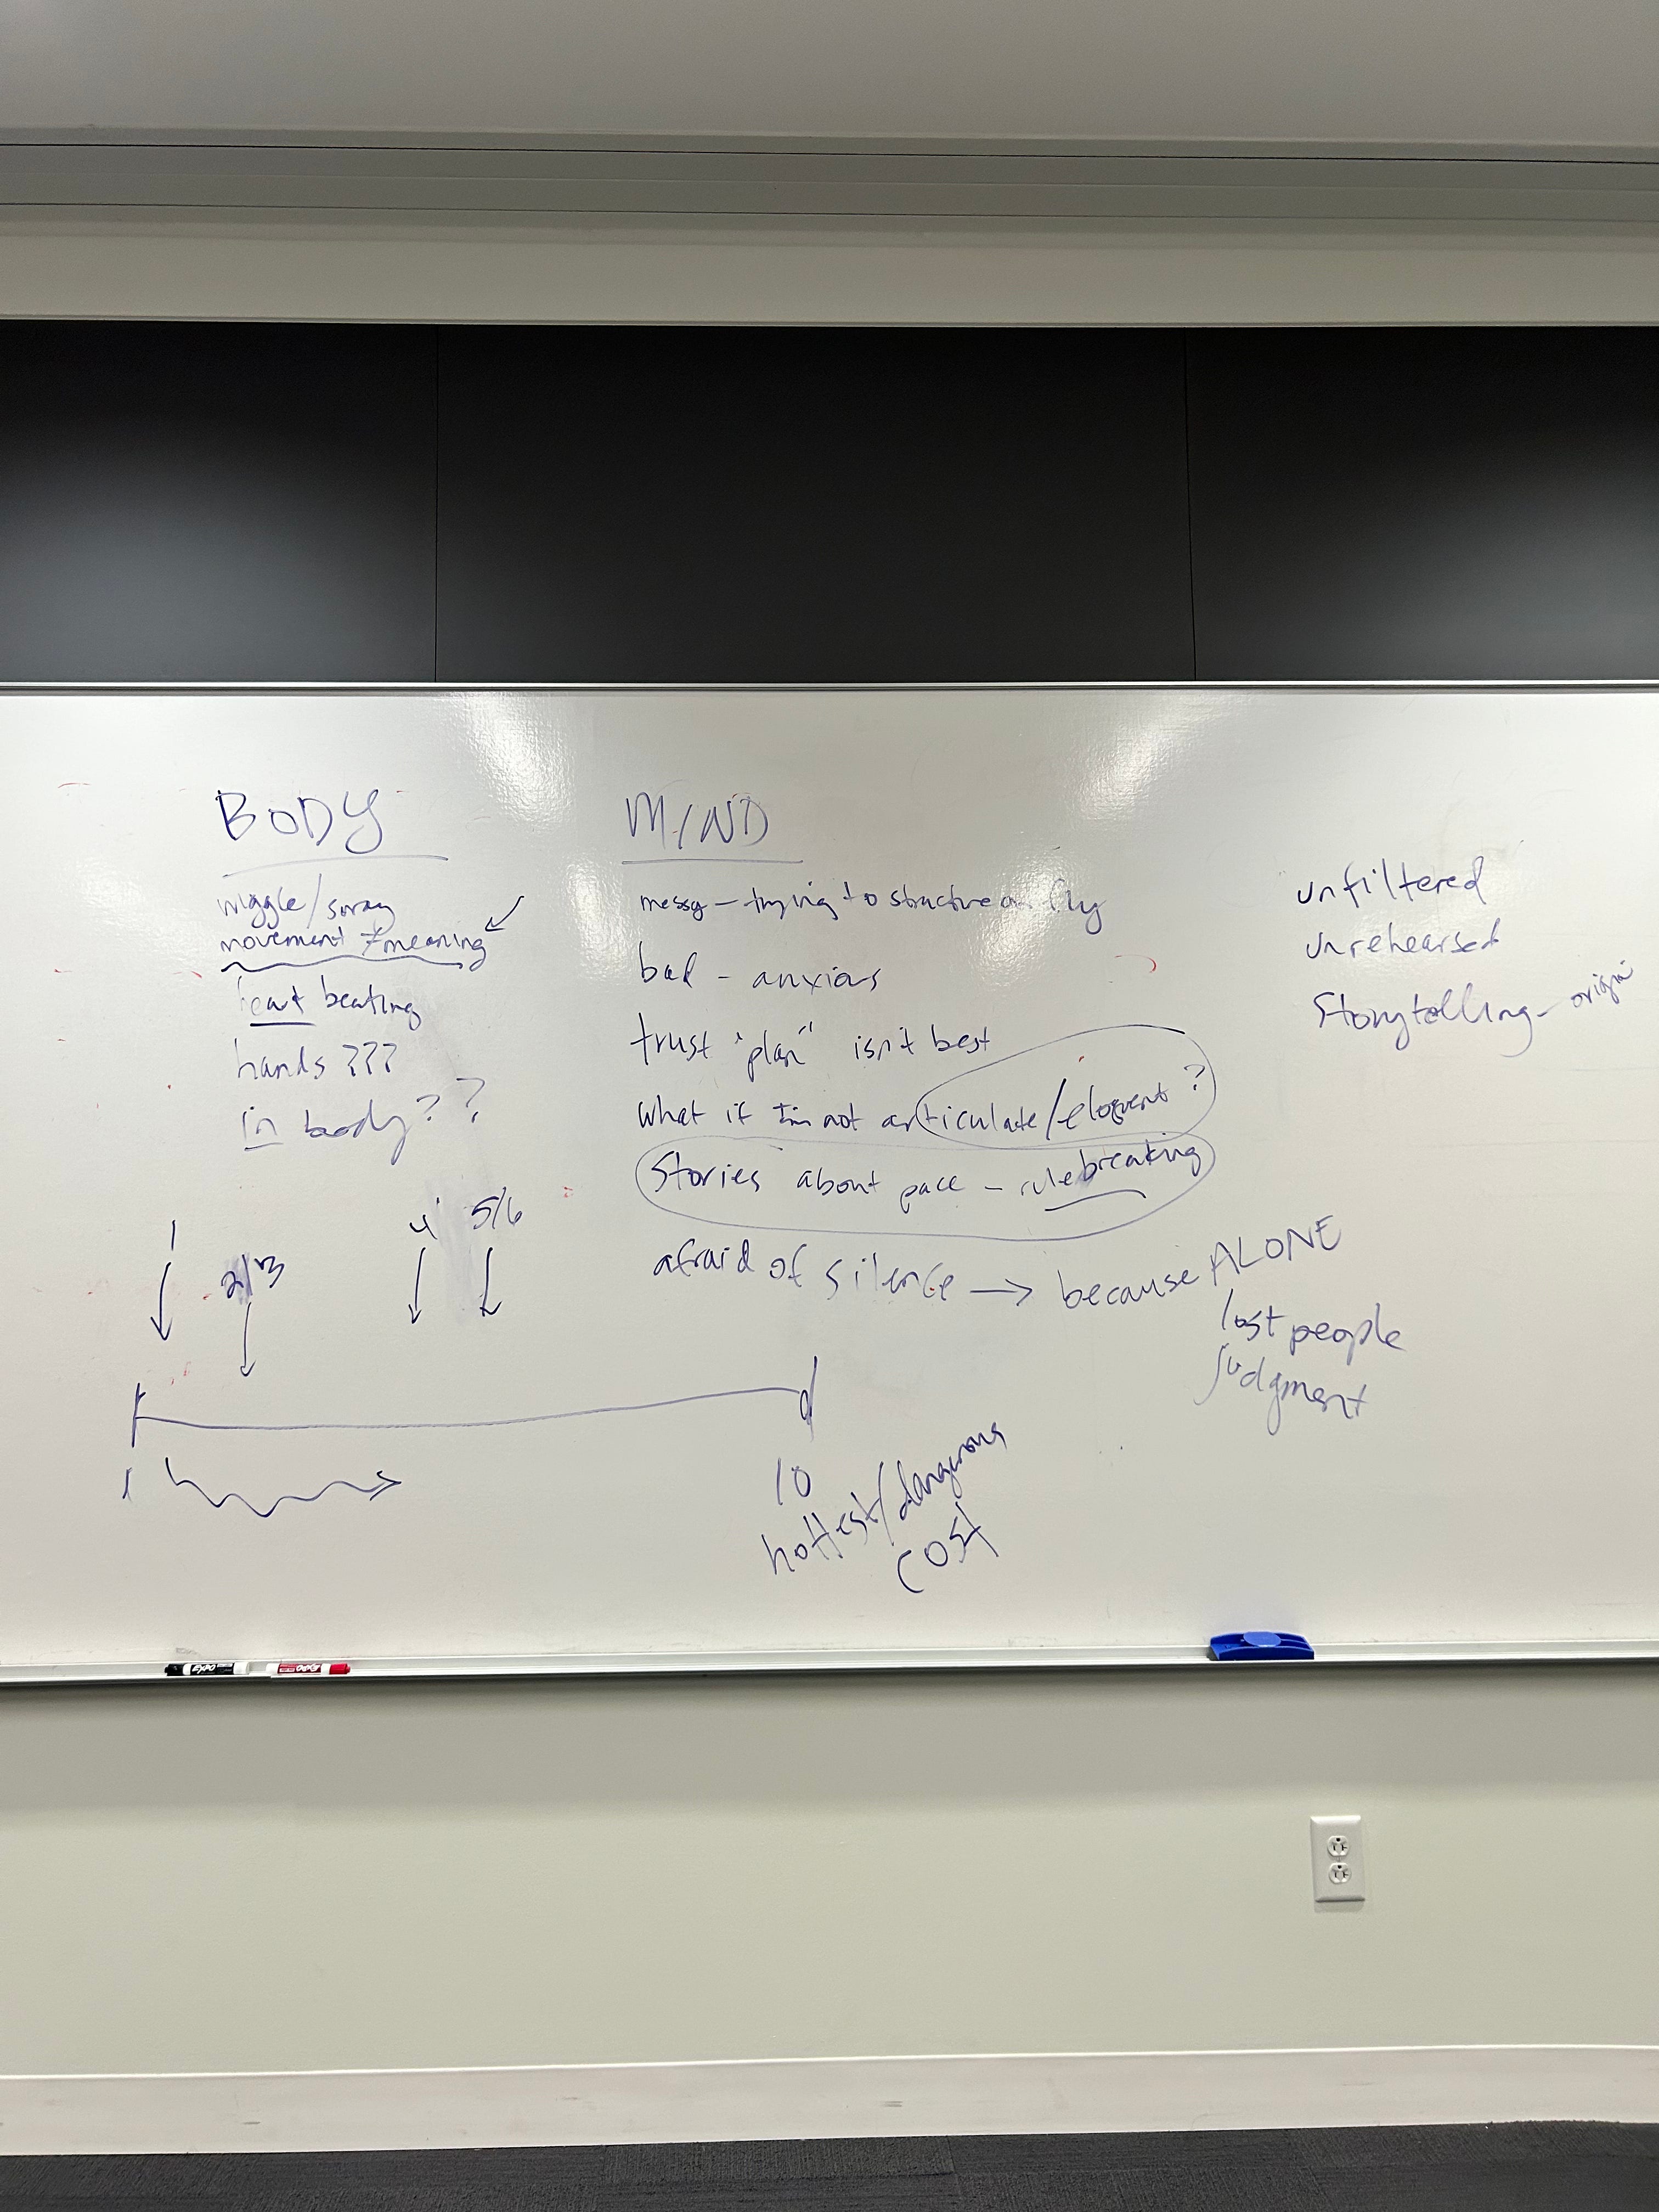 BODY
wiggle/sway
movement ≠ meaning
heart beating
hands ???
in body? ?
MIND
messy - trying to structure on fly
bad - anxious
trust "plan" isn't best
what if I'm not articulate/eloquent?
Stories about pace - rulebreaking
afraid of silence → because ALONE
lost people
judgment
unfiltered
unrehearsed
Storytelling - origin
1
2/3
4
5/6
1
10
hottest/dangerous
cost
EXPO
EXPO